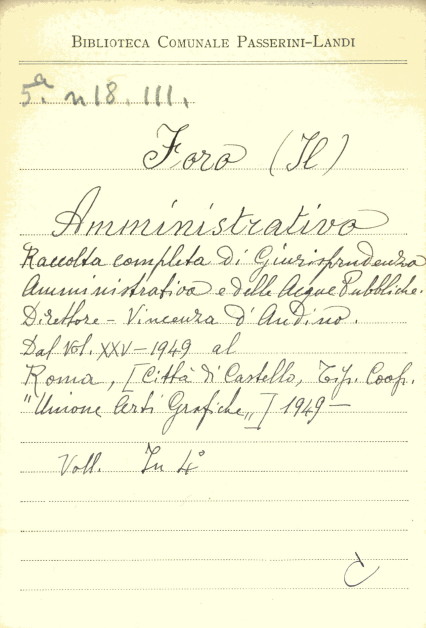 BIBLIOTECA COMUNALE PASSERINI-LANDI
5ª. n 18. III.
Foro (Il)
Amministrativo
Raccolta completa di Giurisprudenza
Amministrativa e delle Acque Pubbliche.
Direttore - Vincenza d'Andino.
Dal Vol. XXV - 1949 al
Roma, [Città di Castello, Tip. Coop.
"Unione Arti Grafiche„] 1949 -
Voll. In 4°
C